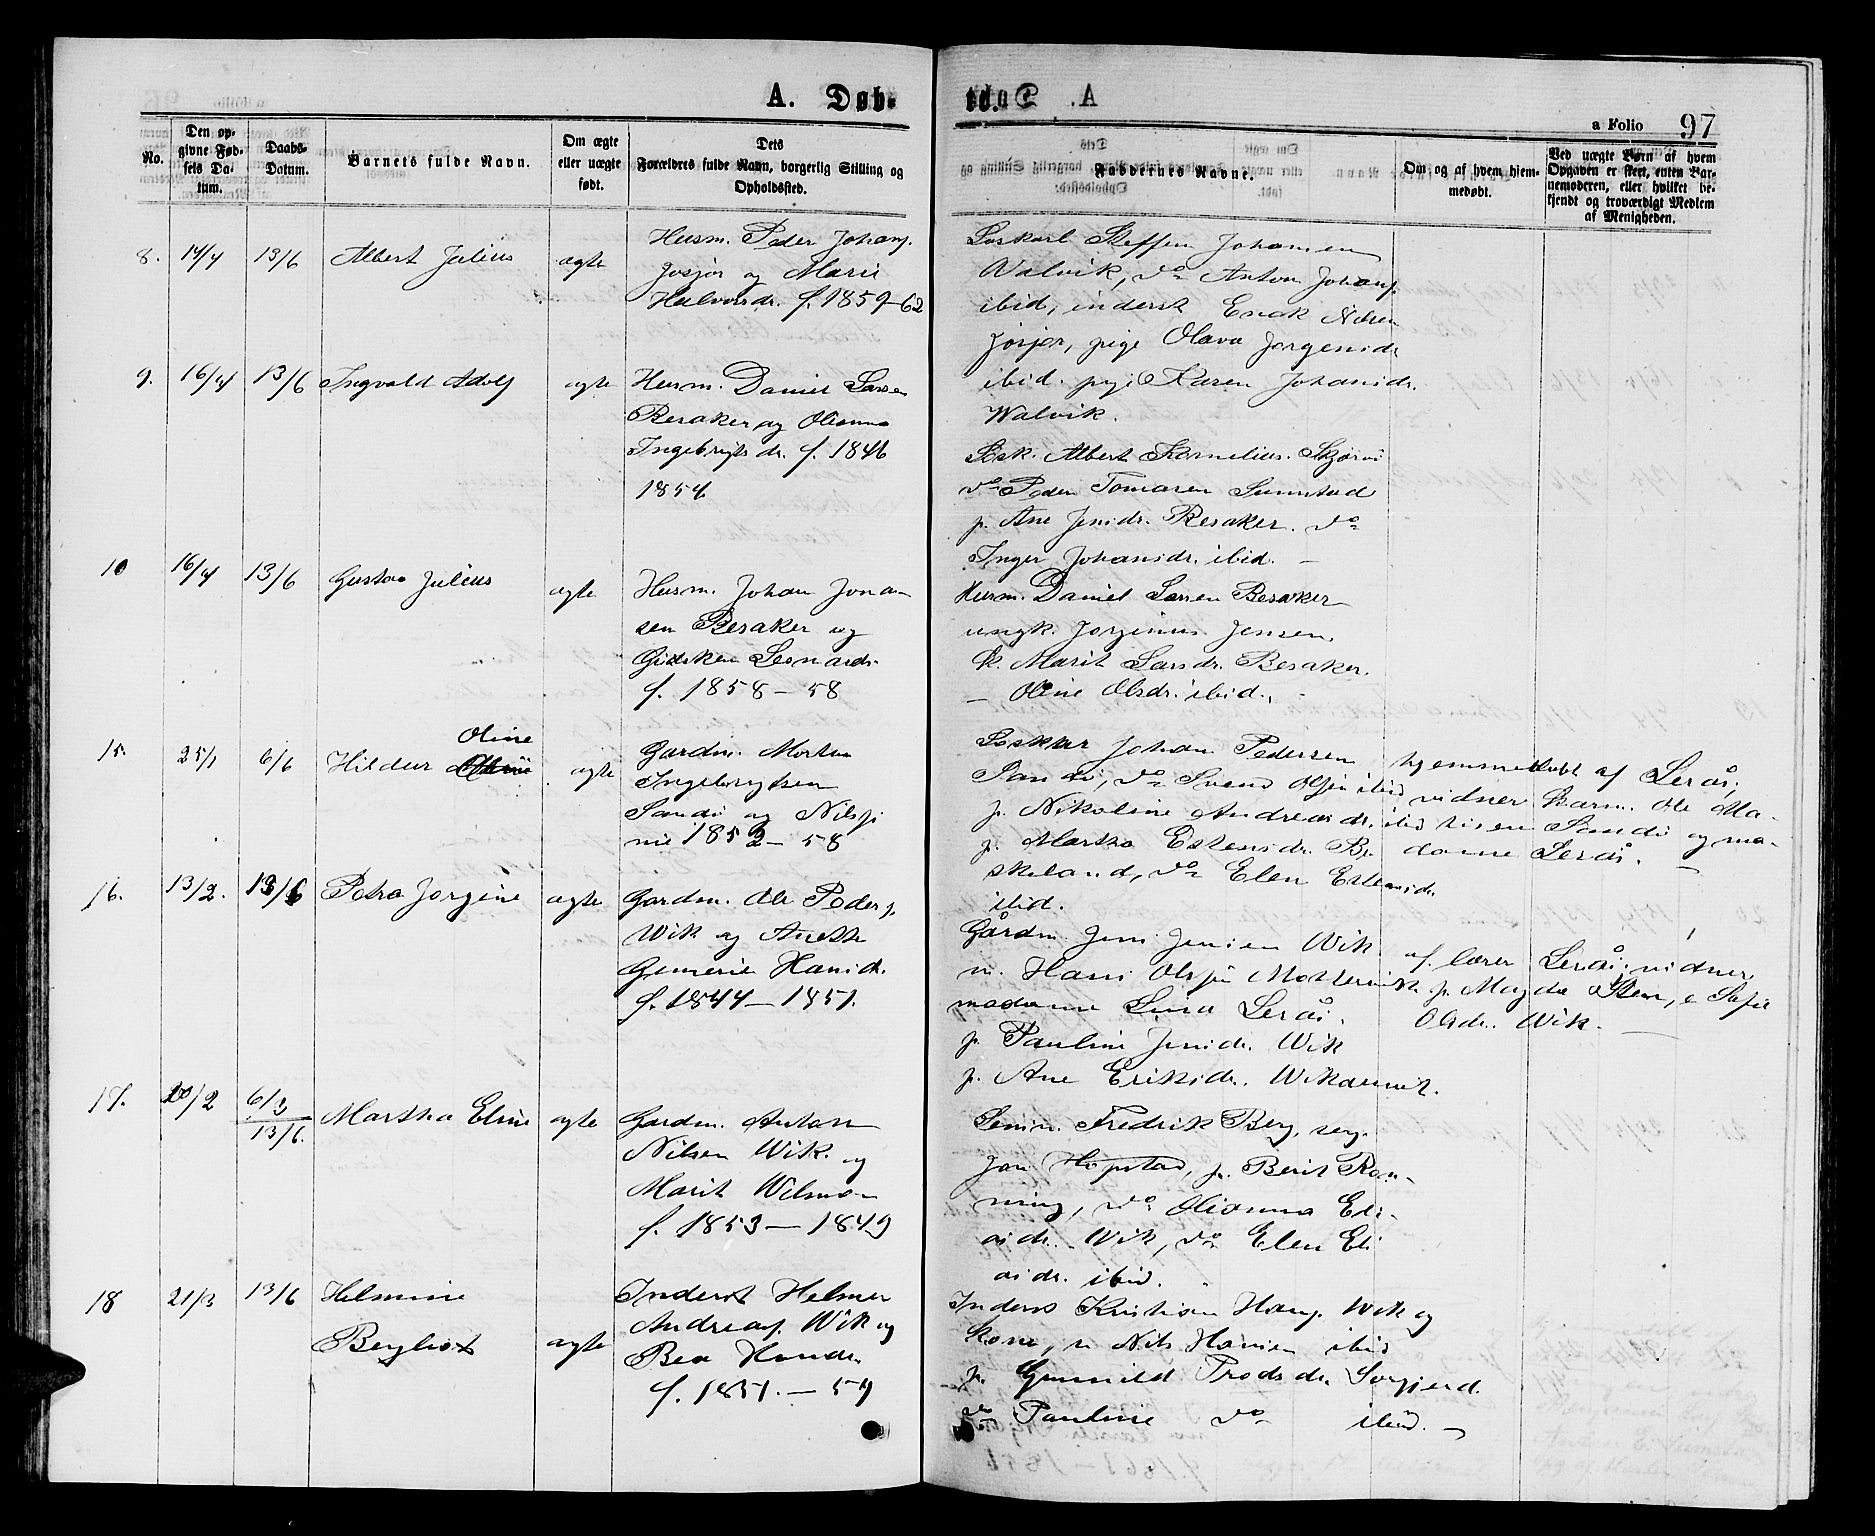 A. Døb-
te.
a Folio 97
No.
Den opgivne Fødsels Datum.
Daabs-Datum.
Barnets fulde Navn.
Om ægte eller uægte født.
Dets Forældres fulde Navn, borgerlig Stilling og Opholdssted.
Faddernes Navne.
Om og af hvem hjemmedøbt.
Ved uægte Børn af hvem Opgaven er skeet, enten Barnemoderen, eller hvilket bekjendt og troværdigt Medlem af Menigheden.
8. 14/4 13/6 Albert Julius ægte
Husm. Peder Johans.
Jøsjør og Marie
Halvorsdr. f. 1859-62
Løskarl Steffen Johansen
Walvik, do Anton Johans.
ibid, inderst Enok Nilsen
Jøsjør, pige Olava Jørgensdr
ibid. pige Karen Johansdr.
Walvik.
9. 16/4 13/6 Ingvald Adolf ægte
Husm. Daniel Larsen
Besaker og Olianna
Ingebrigtsdr. f. 1846
1854
Løsk. Albert Kornelius. Skjørvi
do Peder Tomasen Sumstad
p. Ane Jensdr. Besaker. do
Inger Johansdr. ibid. —
10 16/4 13/6 Gustav Julius ægte
Husm. Johan Jona-
sen Besaker og
Gidsken Leonardsdr.
f. 1858 - 58
Husm. Daniel Larsen Besaker
ungk. Jørginus Jensen.
k. Marit Larsdr. Besaker.
— Oline Olsdr. ibid.
15. 25/1 6/6 Hildur Oline ægte
Gardm. Morten
Ingebrigtsen
Sandø og Nilsji
nie 1852 - 58
Løskar Johan Pedersen
Sandø, do Svend Olsen ibid
p. Nikoline Andreasdr. ibid
p. Martha Estensdr. Be
skeland, do Elen Estensdr.
ibid.
hjemmedøbt af Lerås;
vidner karm. Ole Ma-
tisen Sandø og ma-
dame Lerås. —
16. 13/2. 13/6 Petra Jørgine ægte
Gardm. Ole Peders.
Wik og Anette
Gunerie Hansdr.
f. 1844 - 1851.
Gårdm. Jens Jensen Wik
m. Hans Olsen
madame Lina Lerås.
p. Pauline Jensdr. Wik
p. Ane Eriksdr.
af lærer Lerås; vidner
p. Magda Steen, e Sofie
Olsdr. Wik. —
17. 20/2 6/3 13/6. Martha Elise ægte
Gardm. Anton
Nilsen Wik. og
Marit Wilmo-
f. 1853 — 1849
Semin. Fredrik Berg, serg.
Jon Hopstad, p. Berit Røn-
ning, do Olianna Eli-
asdr. Wik, do Elen Eli
asdr. ibid.
18 21/3 13/6 Helmine
Bergliot ægte
Inderst Helmer
Andreas. Wik og
Bea Hansdr.
f. 1851. — 59
Inders Kristian Hans. Wik og
kone, u Nils Hansen ibid
p. Gunnild Trondsdr. Sørgjerd.
do Pauline do ibid. —